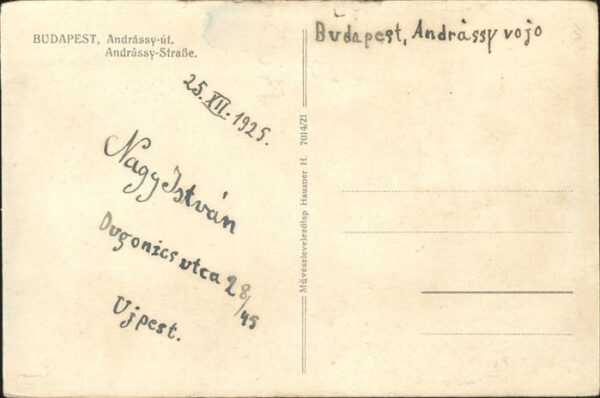 BUDAPEST, Andrássy-út.
Andrássy-Straße.
Budapest, Andrássy vojo
25. XII. 1925.
Nagy István
Dugonics utca 28/45
Ujpest.
Művészlevelezőlap Hausner H. 7014/21